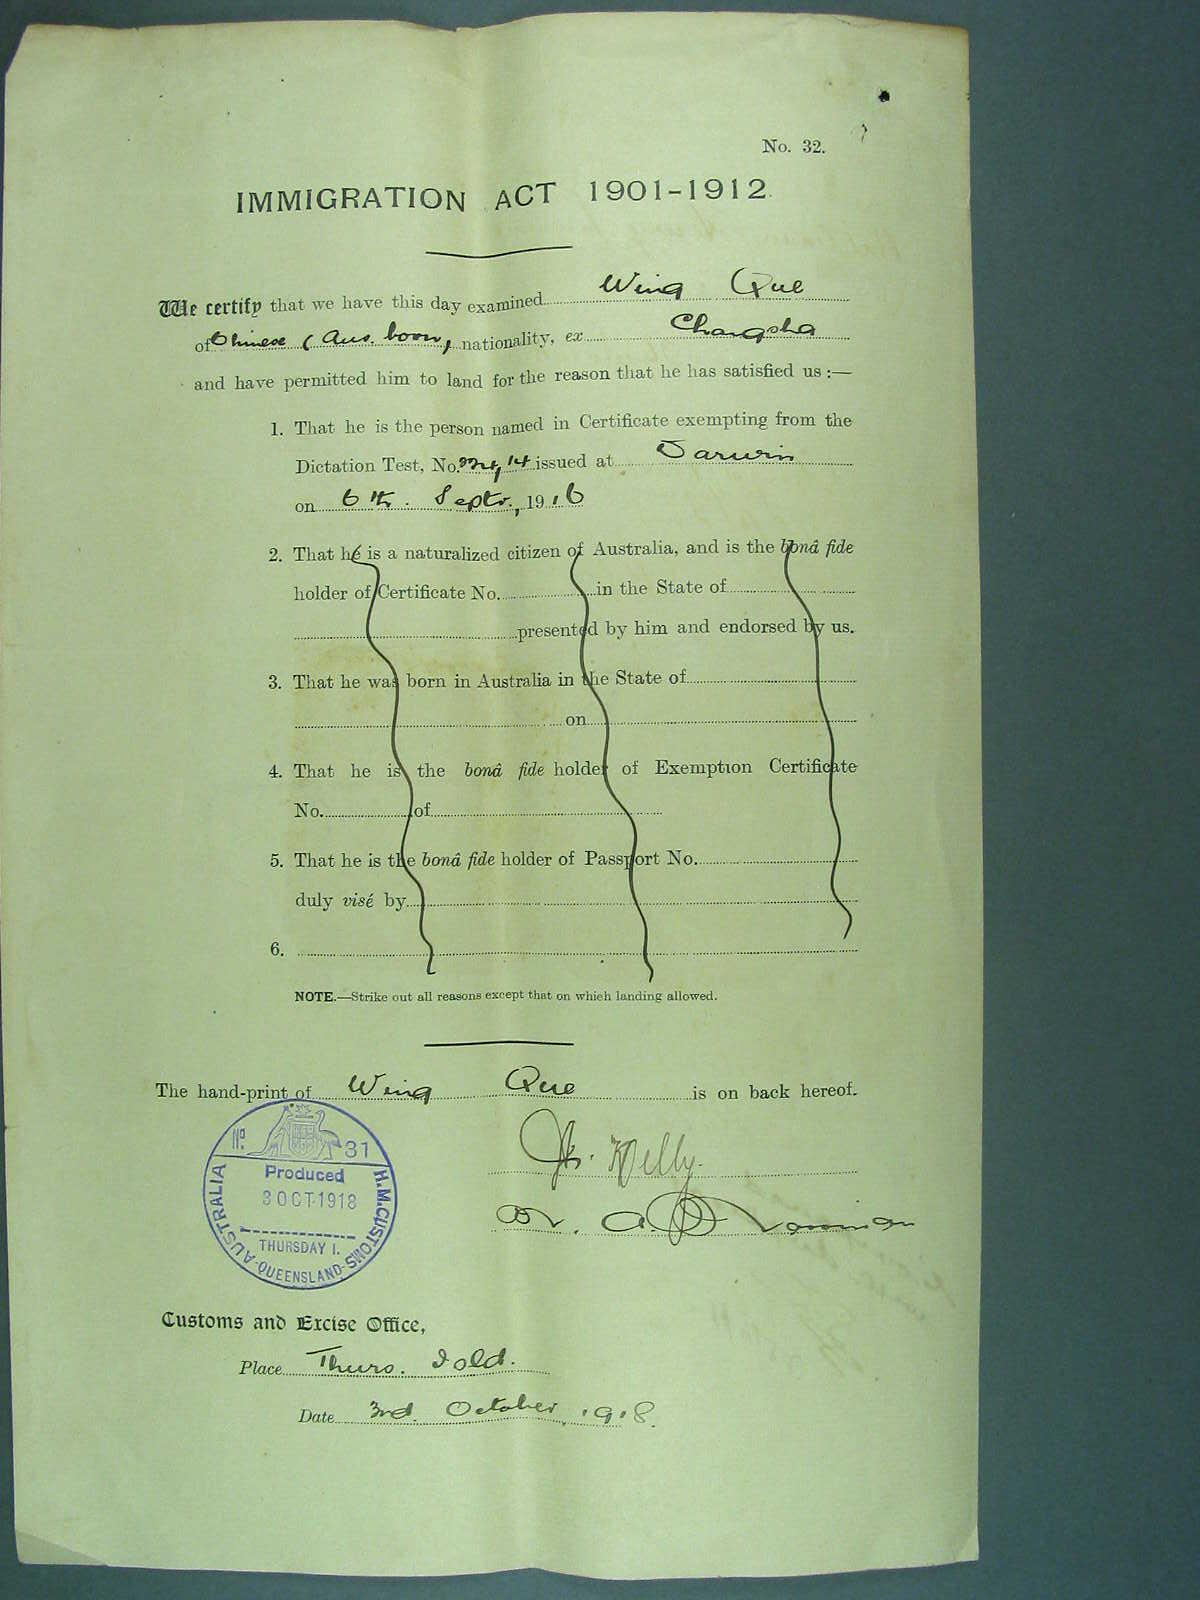 No. 32.
IMMIGRATION ACT 1901-1912.
We certify that we have this day examined Wing Que
of Chinese (Aus. born) nationality, ex Changsha
and have permitted him to land for the reason that he has satisfied us :—
1. That he is the person named in Certificate exempting from the
Dictation Test, No. 14 issued at Darwin
on 6th. Septr., 1916
2. That he is a naturalized citizen of Australia, and is the bonâ fide
holder of Certificate No. in the State of
presented by him and endorsed by us.
3. That he was born in Australia in the State of
on
4. That he is the bonâ fide holder of Exemption Certificate
No. of
5. That he is the bonâ fide holder of Passport No.
duly visé by
6.
NOTE.—Strike out all reasons except that on which landing allowed.
The hand-print of Wing Que is on back hereof.
No. 31
Produced
3 OCT 1918
THURSDAY I.
AUSTRALIA-QUEENSLAND-H.M.CUSTOMS
Customs and Excise Office,
Place Thurs. Isld.
Date 3rd. October, 1918.